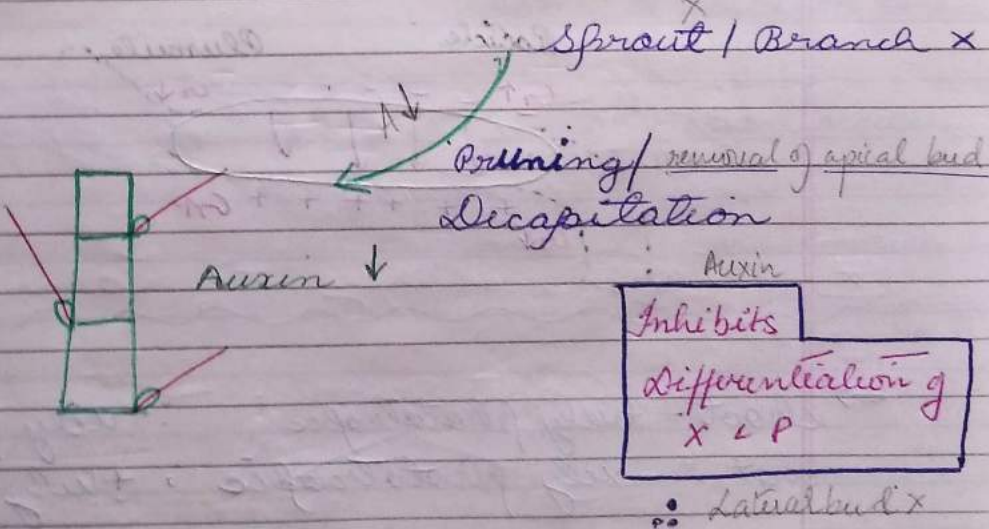 Sprout / Branch ×
A↓
Pruning/ removal of apical bud
Decapitation
Auxin ↓
Auxin
Inhibits
Differentiation of
X & P
∴ Lateral bud ×